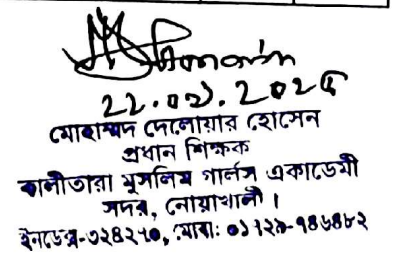 ২২.০১.২০২৫
মোহাম্মদ দেলোয়ার হোসেন
প্রধান শিক্ষক
কালীতারা মুসলিম গার্লস একাডেমী
সদর, নোয়াখালী।
ইনডেক্স-৩২৪২৭০, মোবা: